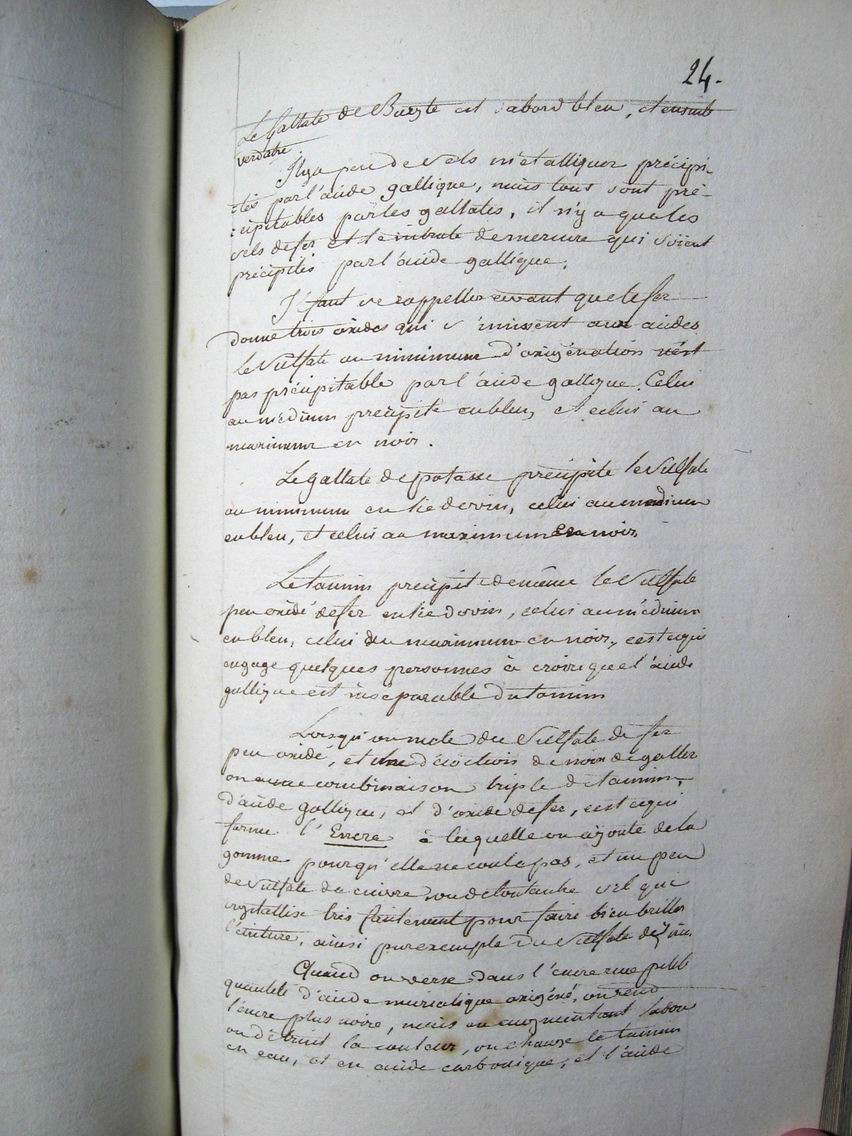 24.
Le Gallate de Baryte est d'abord bleu, et ensuite
verdatre
Il y a peu de sels métalliques précipi-
-tés par l'acide gallique, mais tous sont pré-
-cipitables par les gallates, il n'y a que les
sels de fer et le nitrate de mercure qui soient
précipités par l'acide gallique.
Il faut se rappeller avant que le fer
donne trois oxides qui s'unissent aux acides
le Sulfate au minimum d'oxigénation n'est
pas précipitable par l'acide gallique. Celui
au medium précipite en bleu, et celui au
maximum en noir.
Le gallate de potasse précipite le Sulfate
au minimum en lie de vin, celui au medium
en bleu, et celui au maximum en noir.
Le tannin précipite de même le Sulfate
peu oxidé de fer en lie de vin, celui au médium
en bleu, celui du maximum en noir, c'est ce qui
engage quelques personnes à croire que l'acide
gallique est inséparable du tannin
Lorsqu'on mele du Sulfate de fer
peu oxidé, et une décoction de noix de galle
on a une combinaison triple de tannin,
d'acide gallique, et d'oxide de fer, c'est ce qui
forme l'Encre à laquelle on ajoute de la
gomme pour qu'elle ne coule pas, et un peu
de Sulfate de cuivre ou de tout autre sel qui
crystallise très facilement pour faire bien briller
l'écriture, ainsi par exemple du Sulfate de Zinc
Quand on verse dans l'encre une petite
quantité d'acide muriatique oxigéné, on rend
l'encre plus noire, mais en augmentant la dose
on détruit la couleur, on change le tannin
en eau, et en acide carbonique, et l'acide